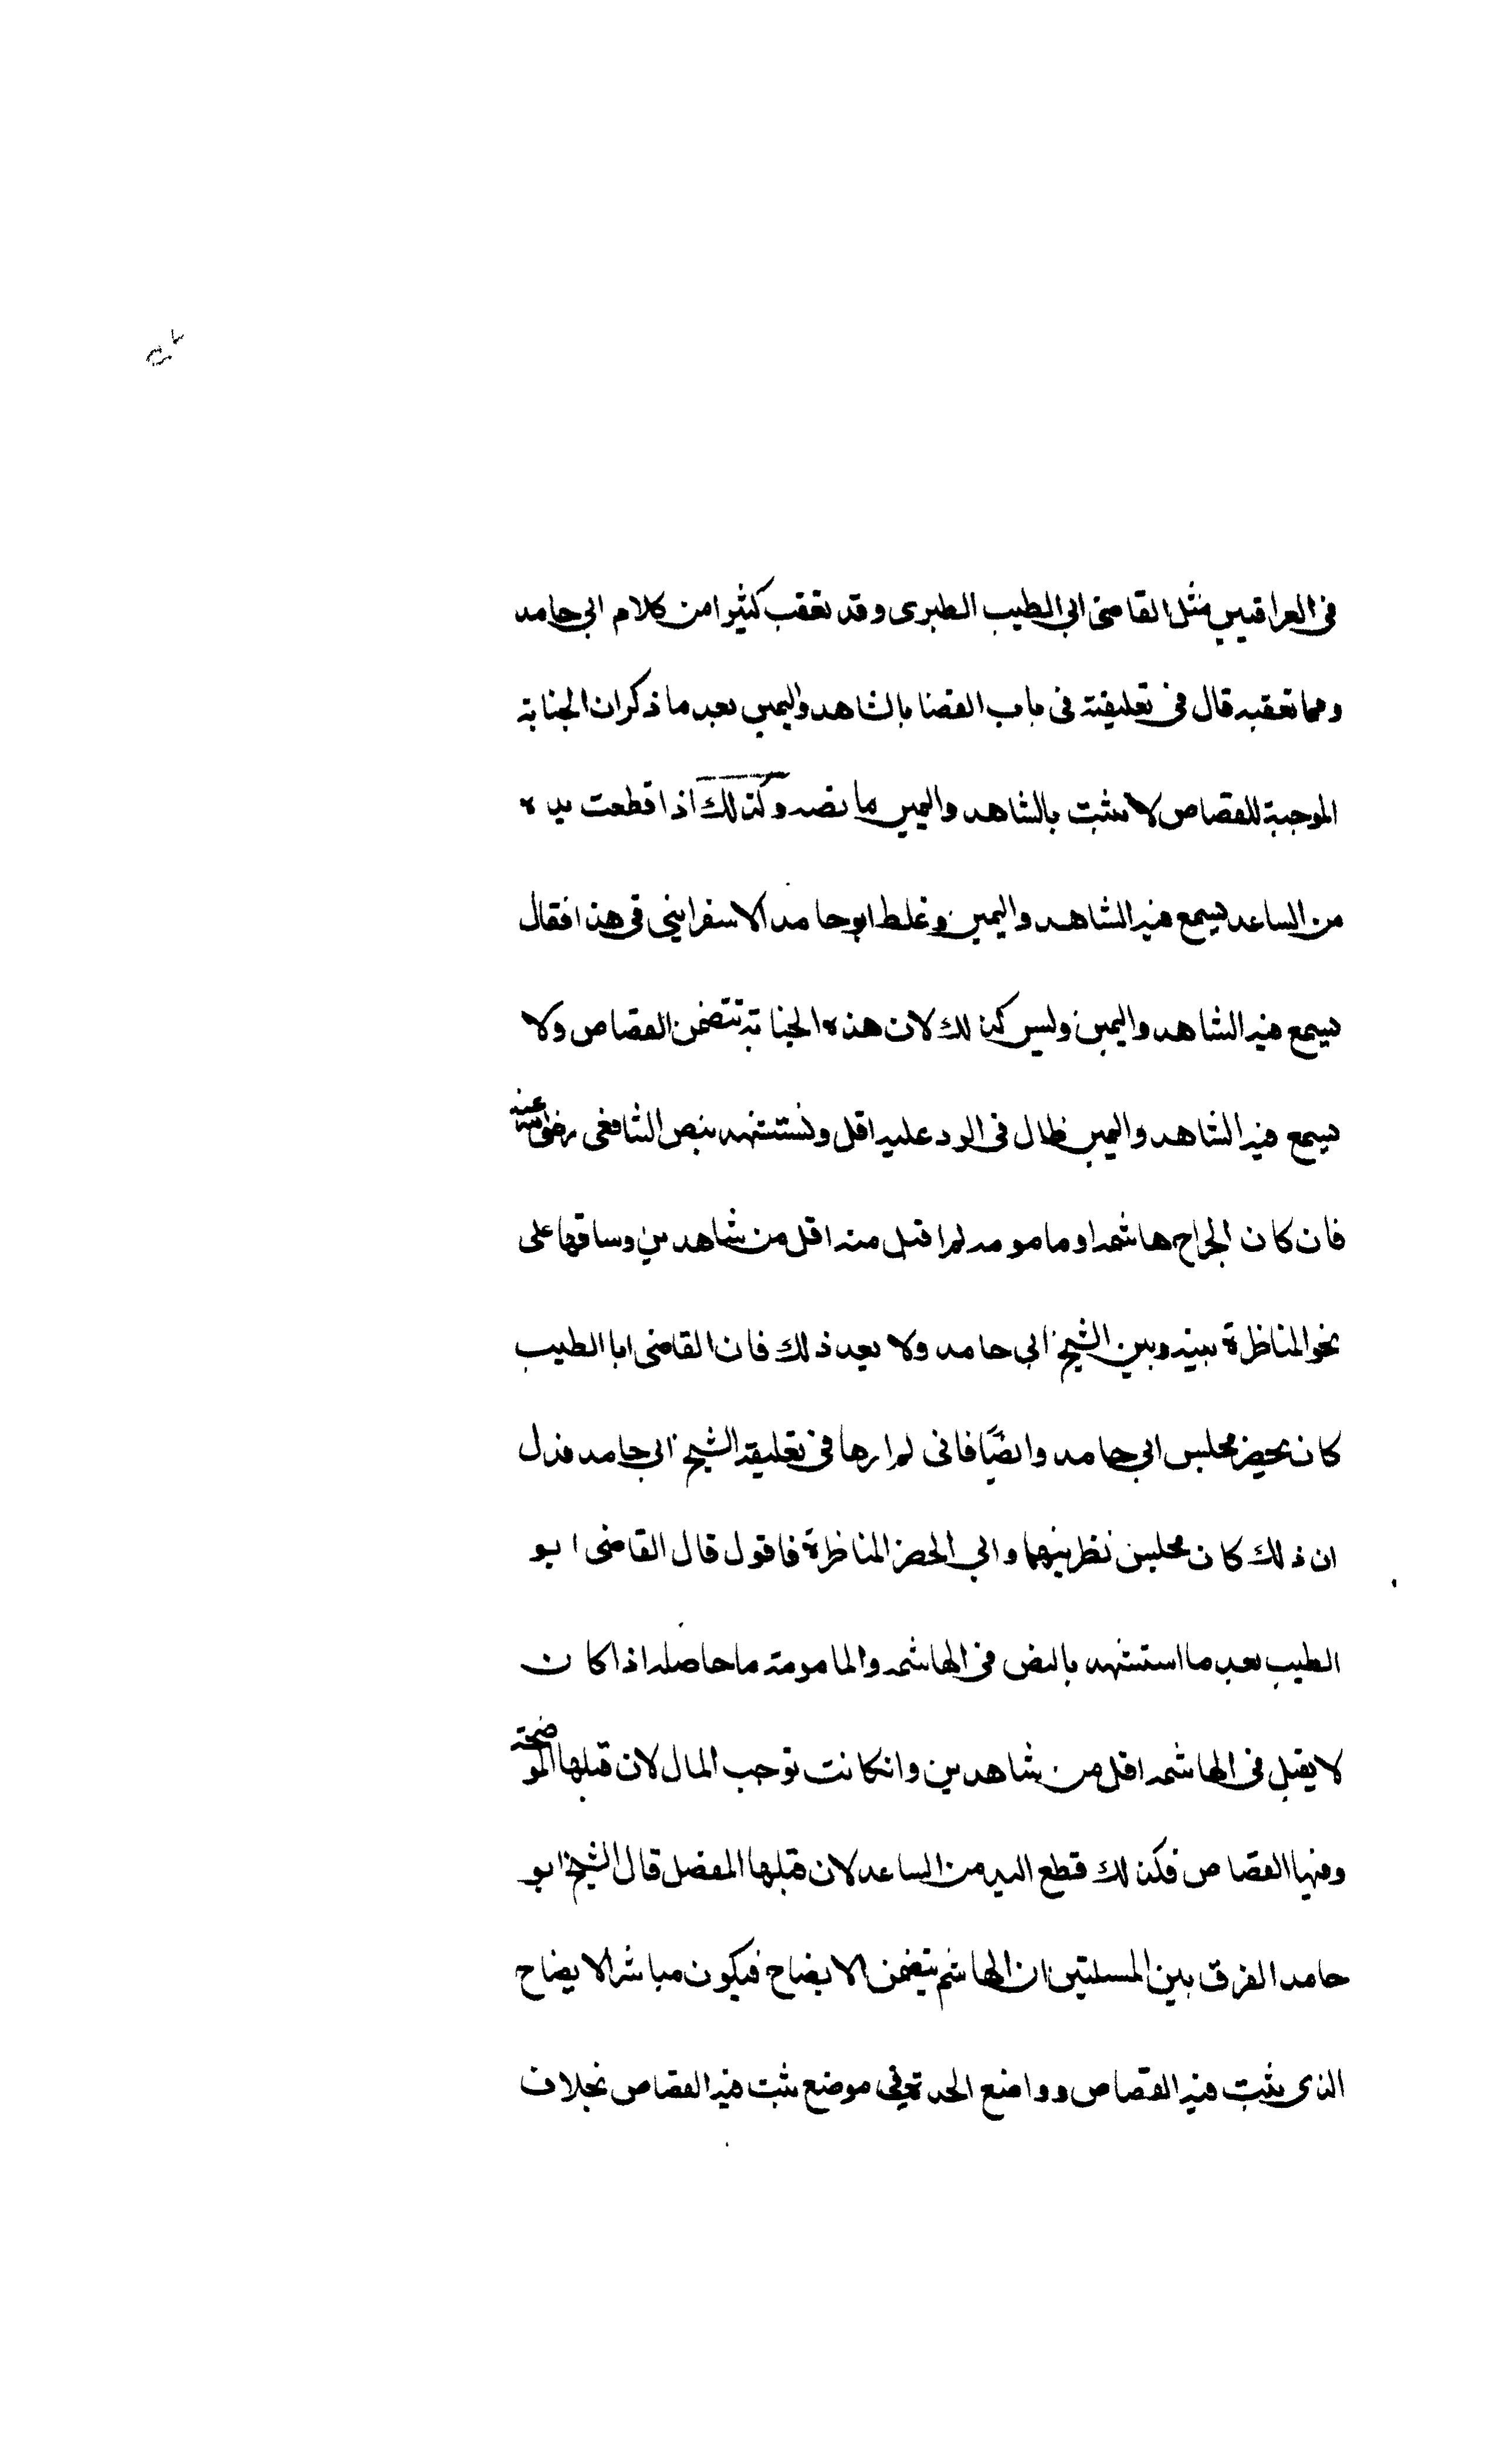 فى العراقيين مثل القاضى ابى الطيب الطبرى وقد تعقب كثيرا من كلام ابى حامد
ومما تعقبه قال فى تعليقته فى باب القضا بالشاهد واليمين بعد ما ذكر ان الجناية
الموجبة للقصاص لا تثبت بالشاهد واليمين ما نصه وكذلك اذا قطعت يده
من الساعد يسمع فيه الشاهد واليمين وغلط ابو حامد الاسفراينى فى هذا فقال
يسمع فيه الشاهد واليمين وليس كذلك لان هذه الجناية تتضمن القصاص ولا
يسمع فيه الشاهد واليمين طال فى الرد عليه اقل ونستشهد بنص الشافعى رضى الله عنه
فان كان الجراح هاشمه او مامومه لم اقبل منه اقل من شاهدين وساقها على
نحو المناظرة بينه وبين الشيخ ابى حامد ولا بعد ذلك فان القاضى ابا الطيب
كان يحضر مجلس ابى حامد وايضًا فانى لم ارها فى تعليقة الشيخ ابى حامد فدل
ان ذلك كان مجلس نظر بينهما وانى الحض المناظرة فاقول قال القاضى ابو
الطيب بعد ما استشهد بالنص فى الهاشمه والمامومة ما حاصله اذا كان
لا يقبل فى الهاشمه اقل من شاهدين وان كانت توجب المال لان قبلها الموضحة
وفيها القصاص فكذلك قطع اليد من الساعد لان قبلها المفصل قال الشيخ ابو
حامد الفرق بين المسلتين ان الهاشم يتضمن الايضاح فيكون مباشر الايضاح
الذى يثبت فيه القصاص وواضع الحدة فى موضع يثبت فيه القصاص بخلاف